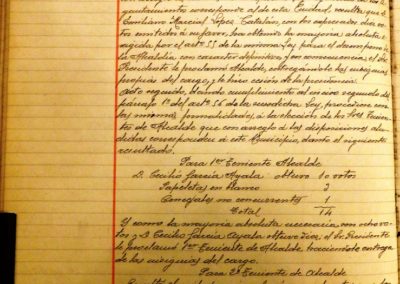 Ayuntamientos corresponde al de esta Ciudad, resulta que D.
Emiliano Marcial López Catalán, con los expresados diez vo-
tos emitidos a su favor, ha obtenido la mayoría absoluta e
exigida por el artº 55 de la misma Ley para el desempeño de
la Alcaldía con caracter definitivo, y en consecuencia el Sr.
Presidente le proclamó Alcalde, entregándole las insignias
propias del cargo, y le hizo cesión de la presidencia.
Acto seguido, dando cumplimiento al inciso segundo del
párrafo 1º del artº 56 de la susodicha Ley, procedióse con
las mismas formalidades, a la elección de los tres Tenien-
tes de Alcalde que con arreglo a las disposiciones alu-
didas corresponden a este Municipio, dando el siguiente
resultado.
Para 1er Teniente Alcalde
D. Cecilio García Ayala obtuvo 10 votos
Papeletas en blanco 3
Concejales no concurrentes 1
Total 14
Y como la mayoría absoluta necesaria son ocho vo-
tos y D. Cecilio García Ayala obtuvo diez, el Sr. Presidente
le proclamó 1er Teniente de Alcalde haciéndole entrega
de las insignias del cargo.
Para 2º Teniente de Alcalde